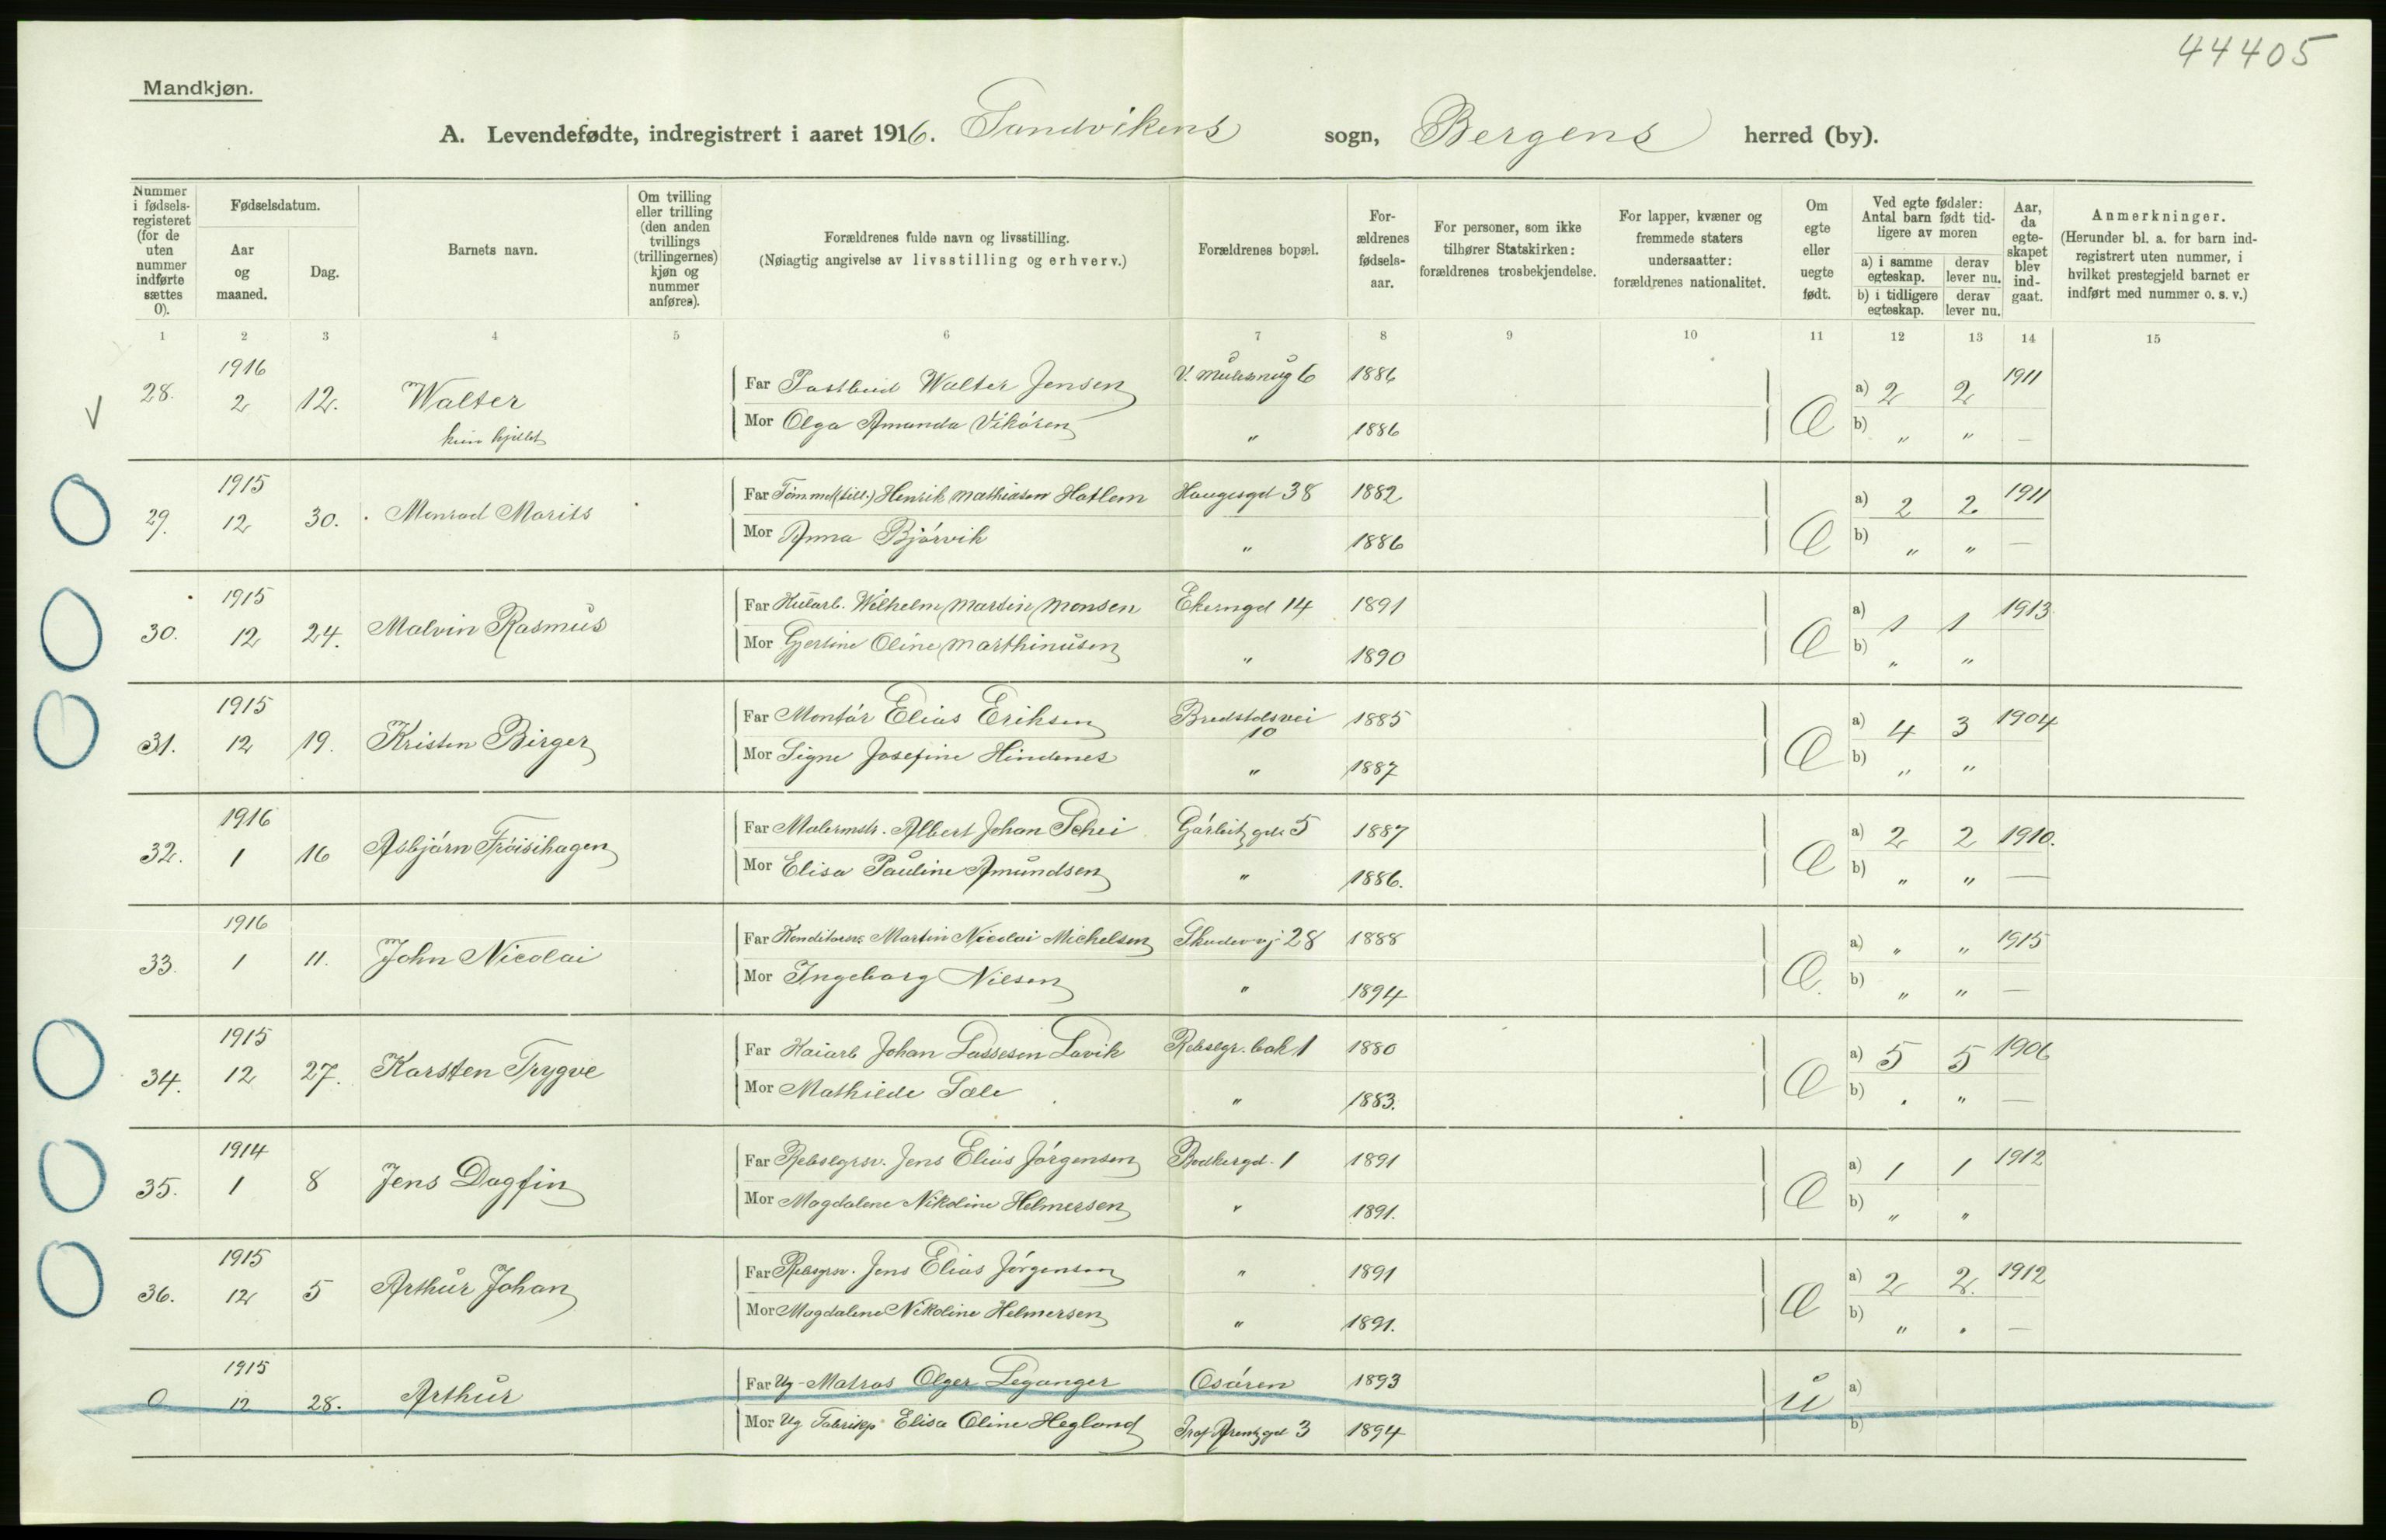 44405
Mandkjøn.
A. Levendefødte, indregistrert i aaret 1916. Sandvikens sogn, Bergens herred (by).
Nummer i fødsels-registeret (for de uten nummer indførte sættes 0).
Fødselsdatum.
Aar og maaned.
Dag.
Barnets navn.
Om tvilling eller trilling (den anden tvillings (trillingernes) kjøn og nummer anføres).
Forældrenes fulde navn og livsstilling.
(Nøiagtig angivelse av livsstilling og erhverv.)
Forældrenes bopæl.
For-ældrenes fødsels-aar.
For personer, som ikke tilhører Statskirken: forældrenes trosbekjendelse.
For lapper, kvæner og fremmede staters undersaatter: forældrenes nationalitet.
Om egte eller uegte født.
Ved egte fødsler: Antal barn født tid-ligere av moren
a) i samme egteskap. derav lever nu.
b) i tidligere egteskap. derav lever nu.
Aar, da egte-skapet blev ind-gaat.
Anmerkninger.
(Herunder bl. a. for barn ind-registrert uten nummer, i hvilket prestegjeld barnet er indført med nummer o. s. v.)
1 2 3 4 5 6 7 8 9 10 11 12 13 14 15
28. 1916 2 12. Walter
Far Postbud Walter Jensen V. Mulesmug 6 1886 Æ a) 2 2 1911
Mor Olga Amanda " 1886 b) " " —
29. 1915 12 30. Monrad Marits
Far Henrik Mathiasen Hatlem Haugesgd 38 1882 Æ a) 2 2 1911
Mor Anna Bjørvik " 1886 b) " " —
30. 1915 12 24. Malvin Rasmus
Far Kularb. Wilhelm Martin Monsen Ekerngd 14 1891 Æ a) 1 1 1913
Mor Gjertine Oline Marthinusen " 1890 b) " "
31. 1915 12 19. Kristen Birger
Far Montør Elias Eriksen Bredstolsvei 10 1885 Æ a) 4 3 1904
Mor Signe Josefine Hindenes " 1887 b) " "
32. 1916 1 16 Asbjørn Frøisihagen
Far Malermstr. Albert Johan Schei 5 1887 Æ a) 2 2 1910.
Mor Elisa Pauline Amundsen " 1886. b) " " —
33. 1916 1 11. John Nicolai
Far Konditorsv. Martin Nicolai Michelsen Skudevvj 28 1888 Æ a) " " 1915
Mor Ingeborg Nilsen " 1894 b) " " —
34. 1915 12 27. Karsten Trygve
Far Kaiarb Johan Lassesen Lavik Rebslgr. bak 1 1880 Æ a) 5 5 1906
Mor Mathilde Tale " 1883. b) " " —
35. 1914 1 8 Jens Dagfin
Far Rebslgrsv. Jens Elias Jørgensen Bødkergd. 1 1891 Æ a) 1 1 1912
Mor Magdalene Nikoline Helmersen " 1891. b) " "
36. 1915 12 5 Arthur Johan
Far Rebsgrsv. Jens Elias Jørgensen " 1891 Æ a) 2 2. 1912
Mor Magdalene Nikoline Helmersen " 1891. b) " " —
0 1915 12 28. Arthur
Far Ug Matros Olger Leganger Osøren 1893 u a)
Mor Ug Fabrikp Elisa Oline Hegland Prof Arentzgd 3 1894 b)